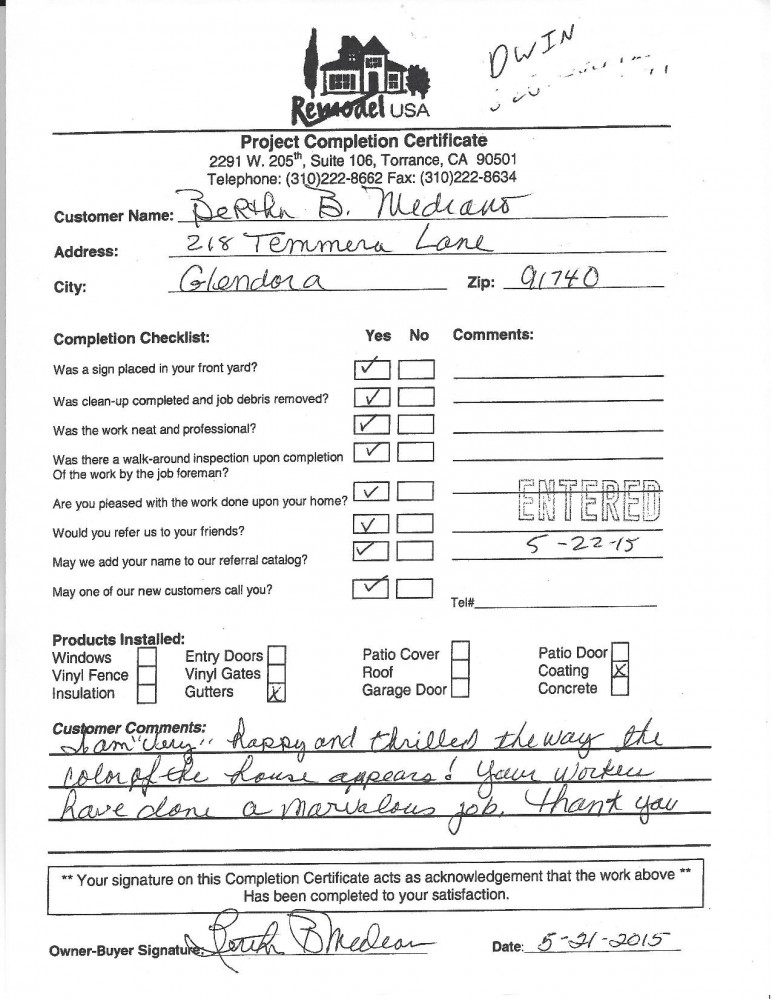 DWIN
Remodel USA
Project Completion Certificate
2291 W. 205th, Suite 106, Torrance, CA 90501
Telephone: (310)222-8662 Fax: (310)222-8634
Customer Name: Bertha B. Medrano
Address: 218 Temmera Lane
City: Glendora Zip: 91740
Completion Checklist: Yes No Comments:
Was a sign placed in your front yard?
Was clean-up completed and job debris removed?
Was the work neat and professional?
Was there a walk-around inspection upon completion
Of the work by the job foreman?
Are you pleased with the work done upon your home?
ENTERED
Would you refer us to your friends?
5-22-15
May we add your name to our referral catalog?
May one of our new customers call you?
Tel#
Products Installed:
Windows Entry Doors Patio Cover Patio Door
Vinyl Fence Vinyl Gates Roof Coating X
Insulation Gutters X Garage Door Concrete
Customer Comments:
I am "Very" happy and thrilled the way the
color of the house appears! Your workers
have done a marvalous job. Thank you
** Your signature on this Completion Certificate acts as acknowledgement that the work above **
Has been completed to your satisfaction.
Owner-Buyer Signature: Bertha B Medrano Date: 5-21-2015